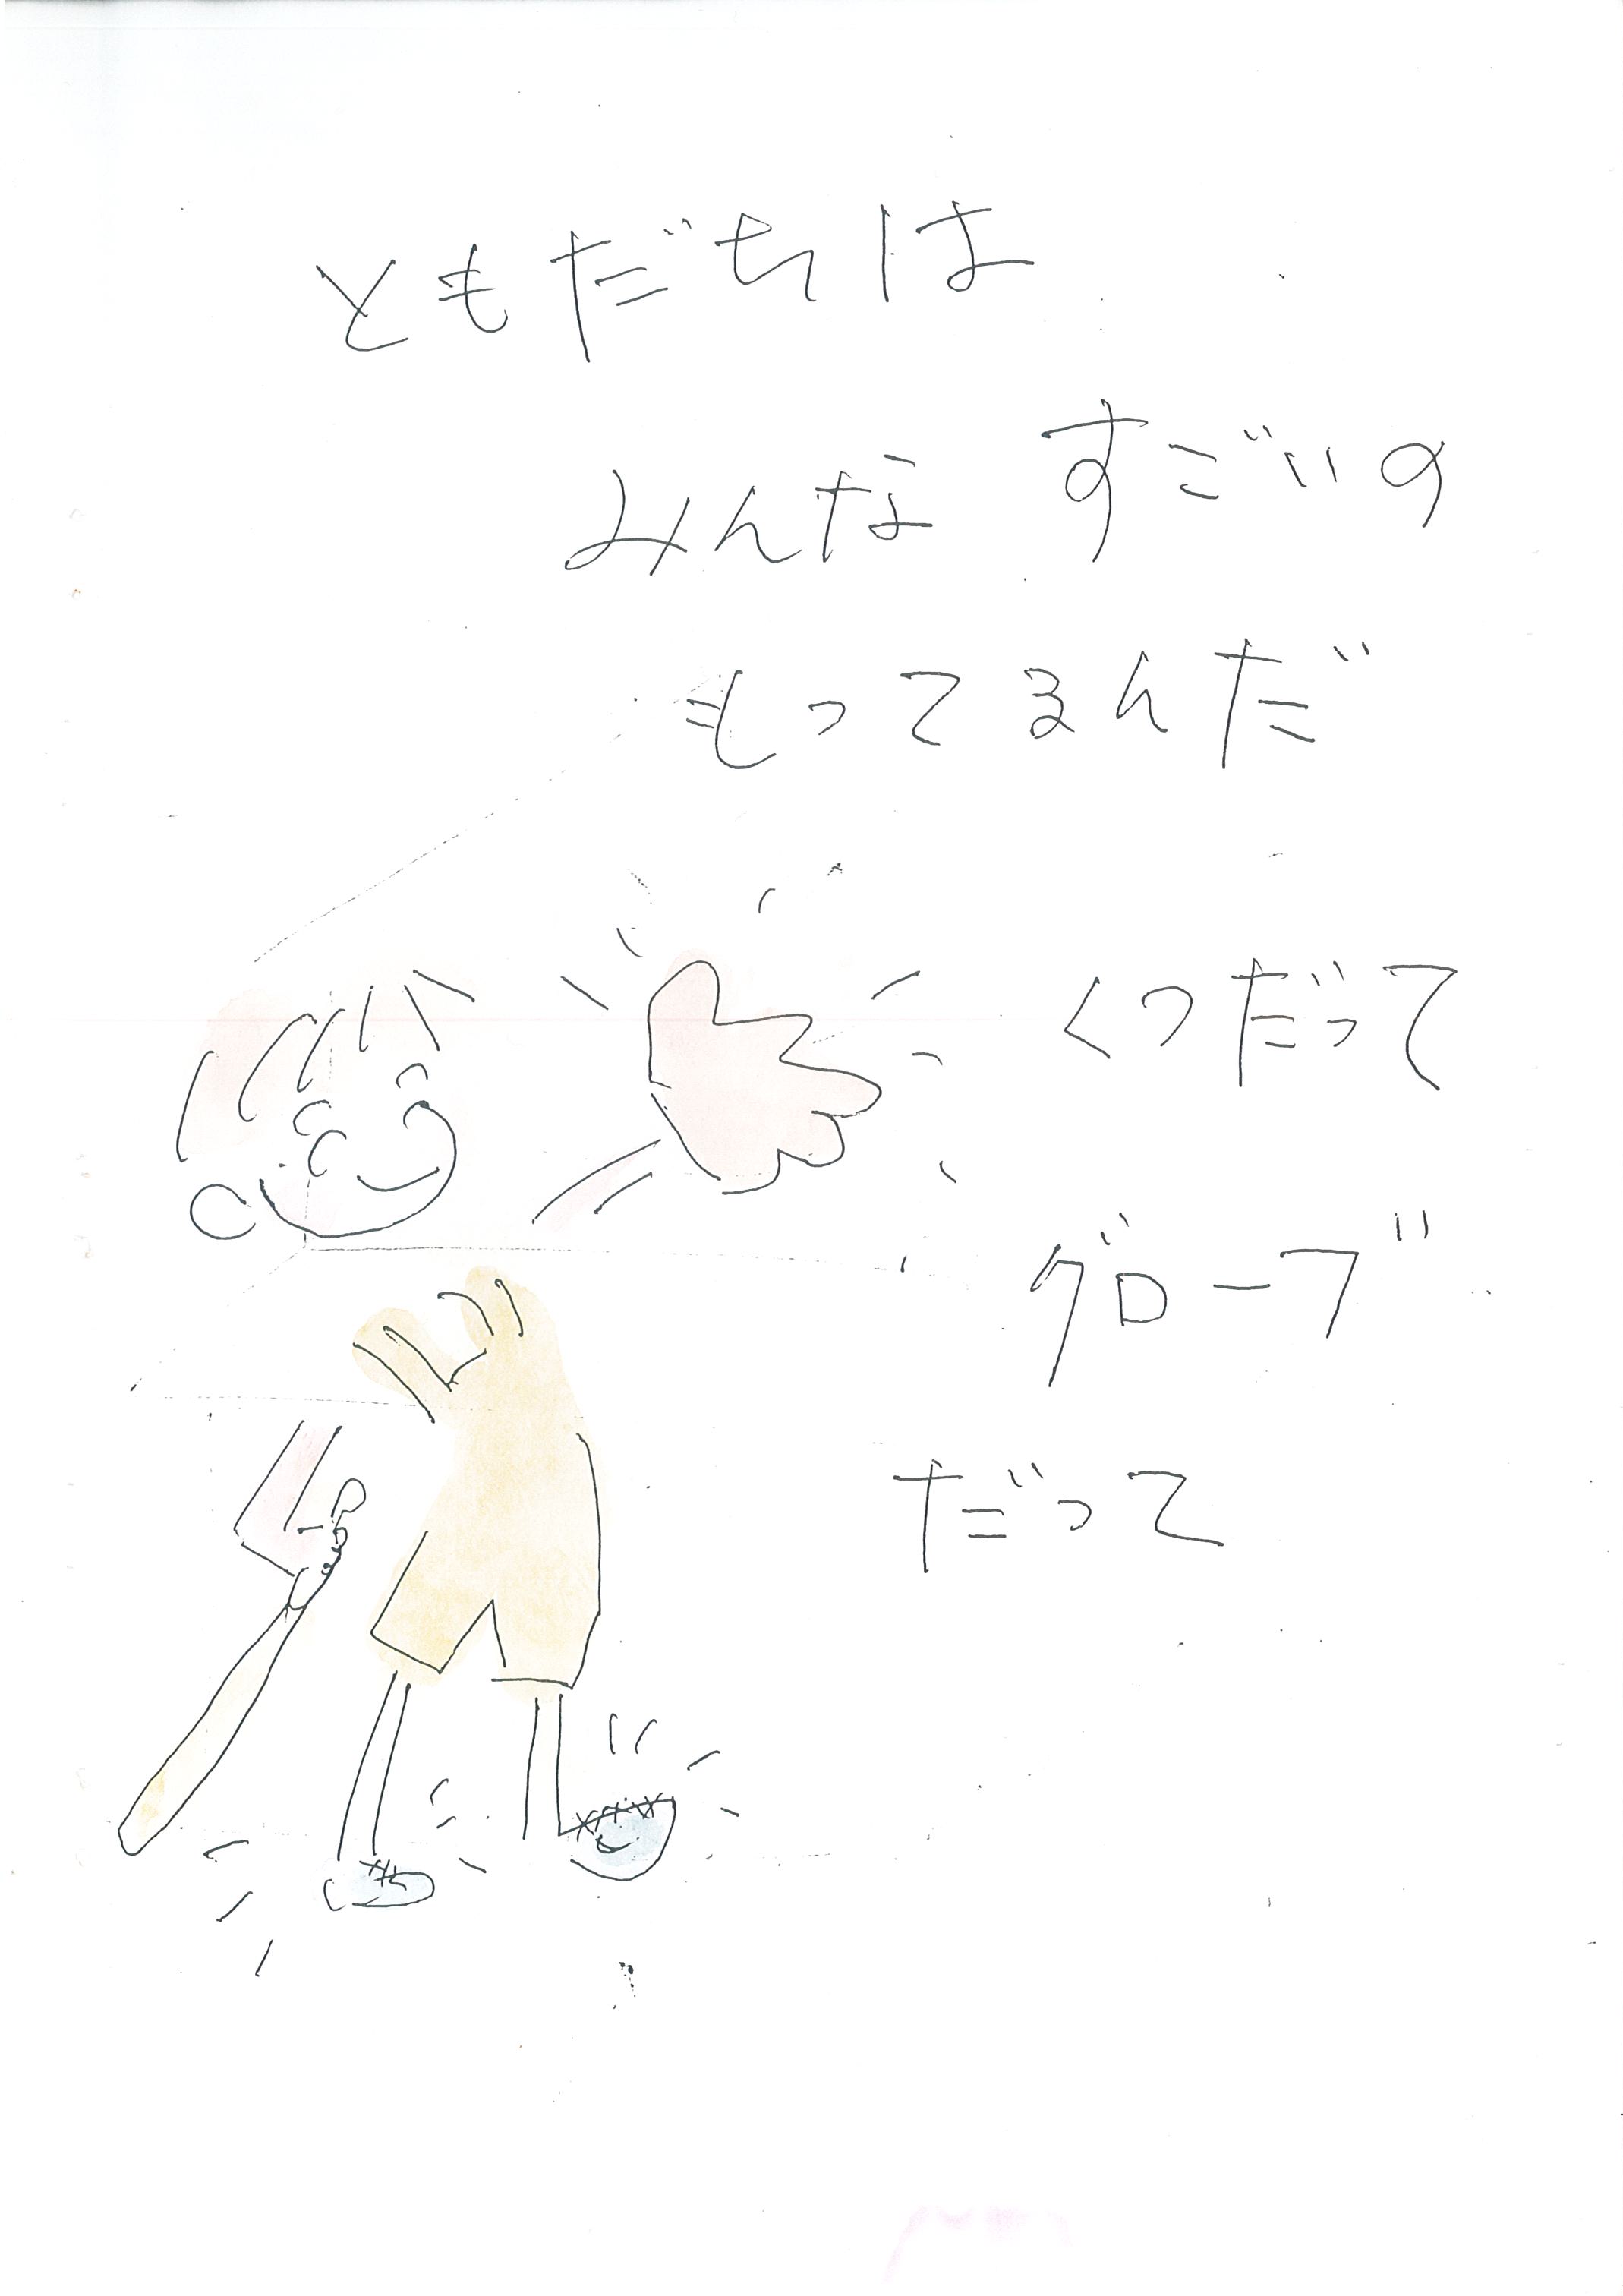 ともだちは
みんな すごいの
もってるんだ
くつだって
グローブ
だって